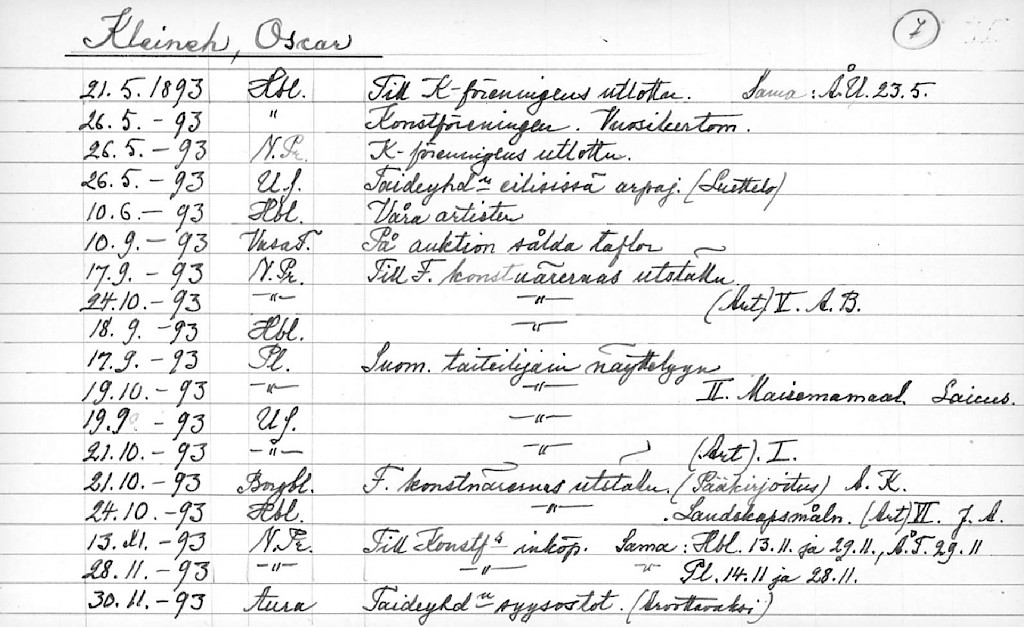 Kleineh, Oscar 7
21.5.1893 Hbl. Till K-föreningens utlottn. Sama: Å.U. 23.5.
26.5.-93 " Konstföreningen. Vuosikertom.
26.5.-93 N.Pr. K-föreningens utlottn.
26.5.-93 U.S. Taideyhdn eilisissä arpaj. (Luettelo)
10.6.-93 Hbl. Våra artister
10.9.-93 VasaT. På auktion sålda taflor
17.9.-93 N.Pr. Till F. konstnärernas utställn.
24.10.-93 -"- -"- (Art) V. A.B.
18.9.-93 Hbl. -"-
17.9.-93 Pl. Suom. taiteilijain näyttelyyn
19.10.-93 -"- -"- II. Maisemamaal. Laicus.
19.9 -93 U.S. -"-
21.10.-93 -"- -"- (Art). I.
21.10.-93 Borgbl. F. konstnärernas utställn. (Pääkirjoitus) A.K.
24.10.-93 Hbl. -"- Landskapsmåln. (Art) VI. J.A.
13.XI.-93 N.Pr. Till Konstfs inköp. Sama: Hbl. 13.11. ja 29.11., Å.T. 29.11
28.11.-93 -"- -"- -"- Pl. 14.11 ja 28.11.
30.11.-93 Aura Taideyhdn syysostot. (Arvottavaksi)